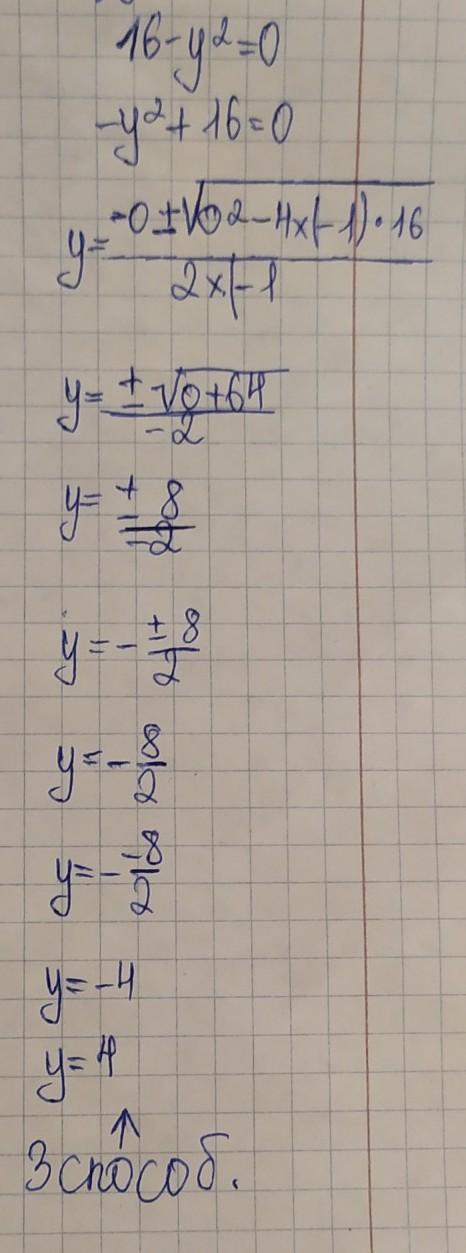 16-y²=0
-y²+16=0
y=-0±√0²-4x(-1)·16
2x(-1
y=±√0+64
-2
y=±8
-2
y=-±8
2
y=-8
2
y=--8
2
y=-4
y=4
↑
3 способ.